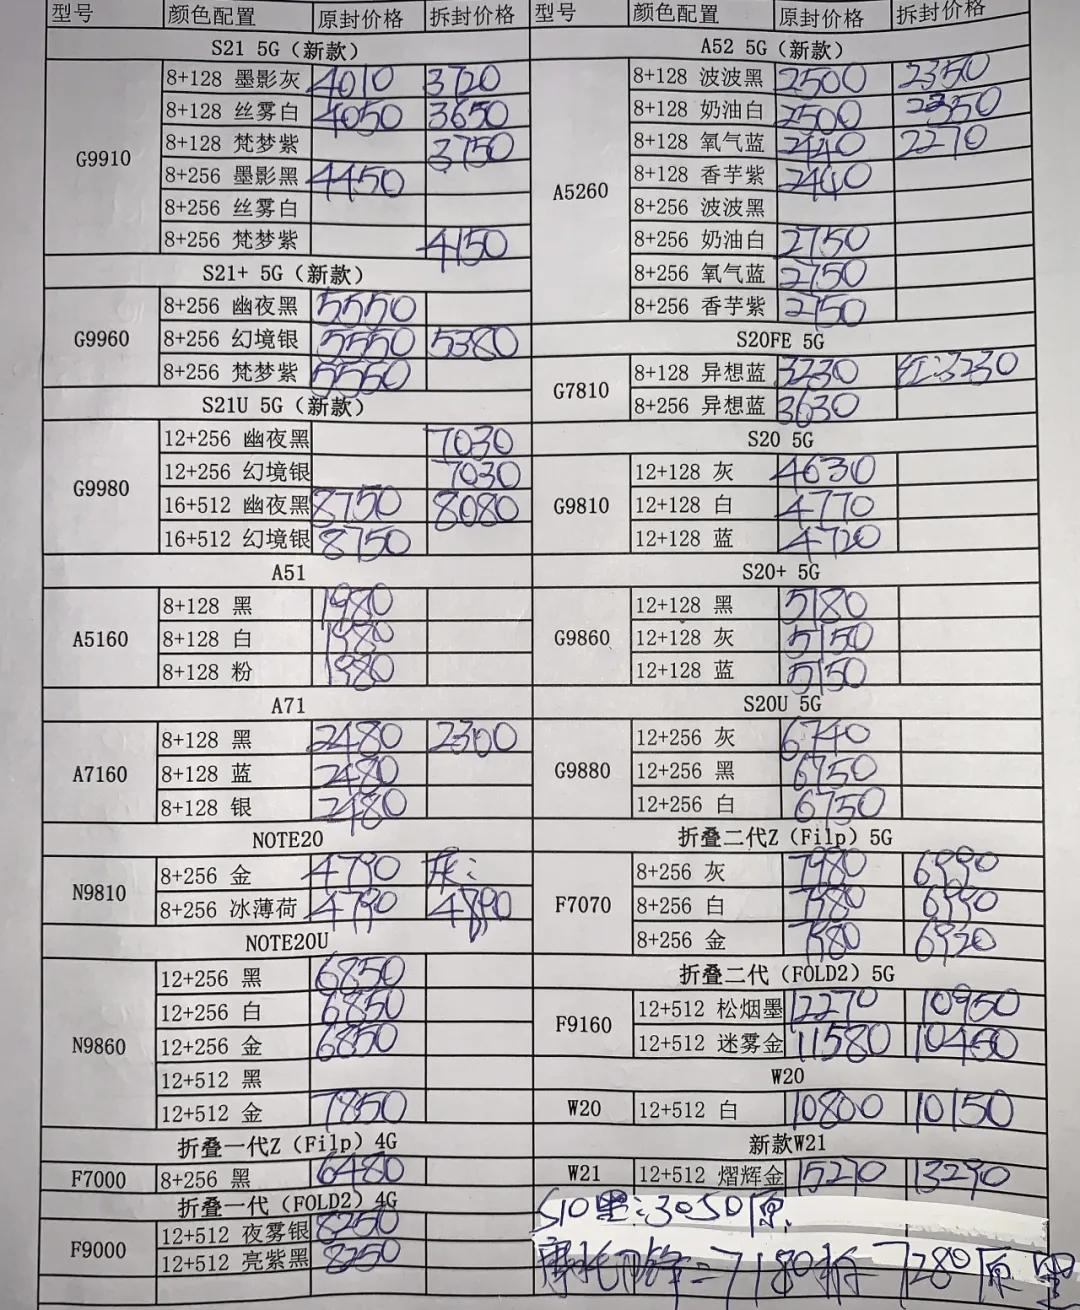 型号 颜色配置 原封价格 拆封价格
S21 5G（新款）
G9910
8+128 墨影灰 4010 3720
8+128 丝雾白 4050 3650
8+128 梵梦紫 3750
8+256 墨影黑 4450
8+256 丝雾白
8+256 梵梦紫 4150
S21+ 5G（新款）
G9960
8+256 幽夜黑 5550
8+256 幻境银 5550 5380
8+256 梵梦紫 5550
S21U 5G（新款）
G9980
12+256 幽夜黑 7030
12+256 幻境银 7030
16+512 幽夜黑 8750 8080
16+512 幻境银 8750
A51
A5160
8+128 黑 1980
8+128 白 1980
8+128 粉 1980
A71
A7160
8+128 黑 2480 2300
8+128 蓝 2480
8+128 银 2480
NOTE20
N9810
8+256 金 4790
8+256 冰薄荷 4790 4890
NOTE20U
N9860
12+256 黑 6850
12+256 白 6850
12+256 金 6850
12+512 黑
12+512 金 7850
折叠一代Z（Filp）4G
F7000
8+256 黑 6480
折叠一代（FOLD2）4G
F9000
12+512 夜雾银 8250
12+512 亮紫黑 8250
型号 颜色配置 原封价格 拆封价格
A52 5G（新款）
A5260
8+128 波波黑 2500 2350
8+128 奶油白 2500 2350
8+128 氧气蓝 2440 2270
8+128 香芋紫 2440
8+256 波波黑
8+256 奶油白 2750
8+256 氧气蓝 2750
8+256 香芋紫 2750
S20FE 5G
G7810
8+128 异想蓝 3230 红:3230
8+256 异想蓝 3630
S20 5G
G9810
12+128 灰 4630
12+128 白 4770
12+128 蓝 4720
S20+ 5G
G9860
12+128 黑 5180
12+128 灰 5150
12+128 蓝 5150
S20U 5G
G9880
12+256 灰 6740
12+256 黑 6750
12+256 白 6750
折叠二代Z（Filp）5G
F7070
8+256 灰 7980 6990
8+256 白 7980 6990
8+256 金 7980 6920
折叠二代（FOLD2）5G
F9160
12+512 松烟墨 12270 10950
12+512 迷雾金 11580 10460
W20
W20 12+512 白 10800 10150
新款W21
W21 12+512 熠辉金 15270 13290
S10黑:3050原
摩托刀锋=7180拆 7280原 黑